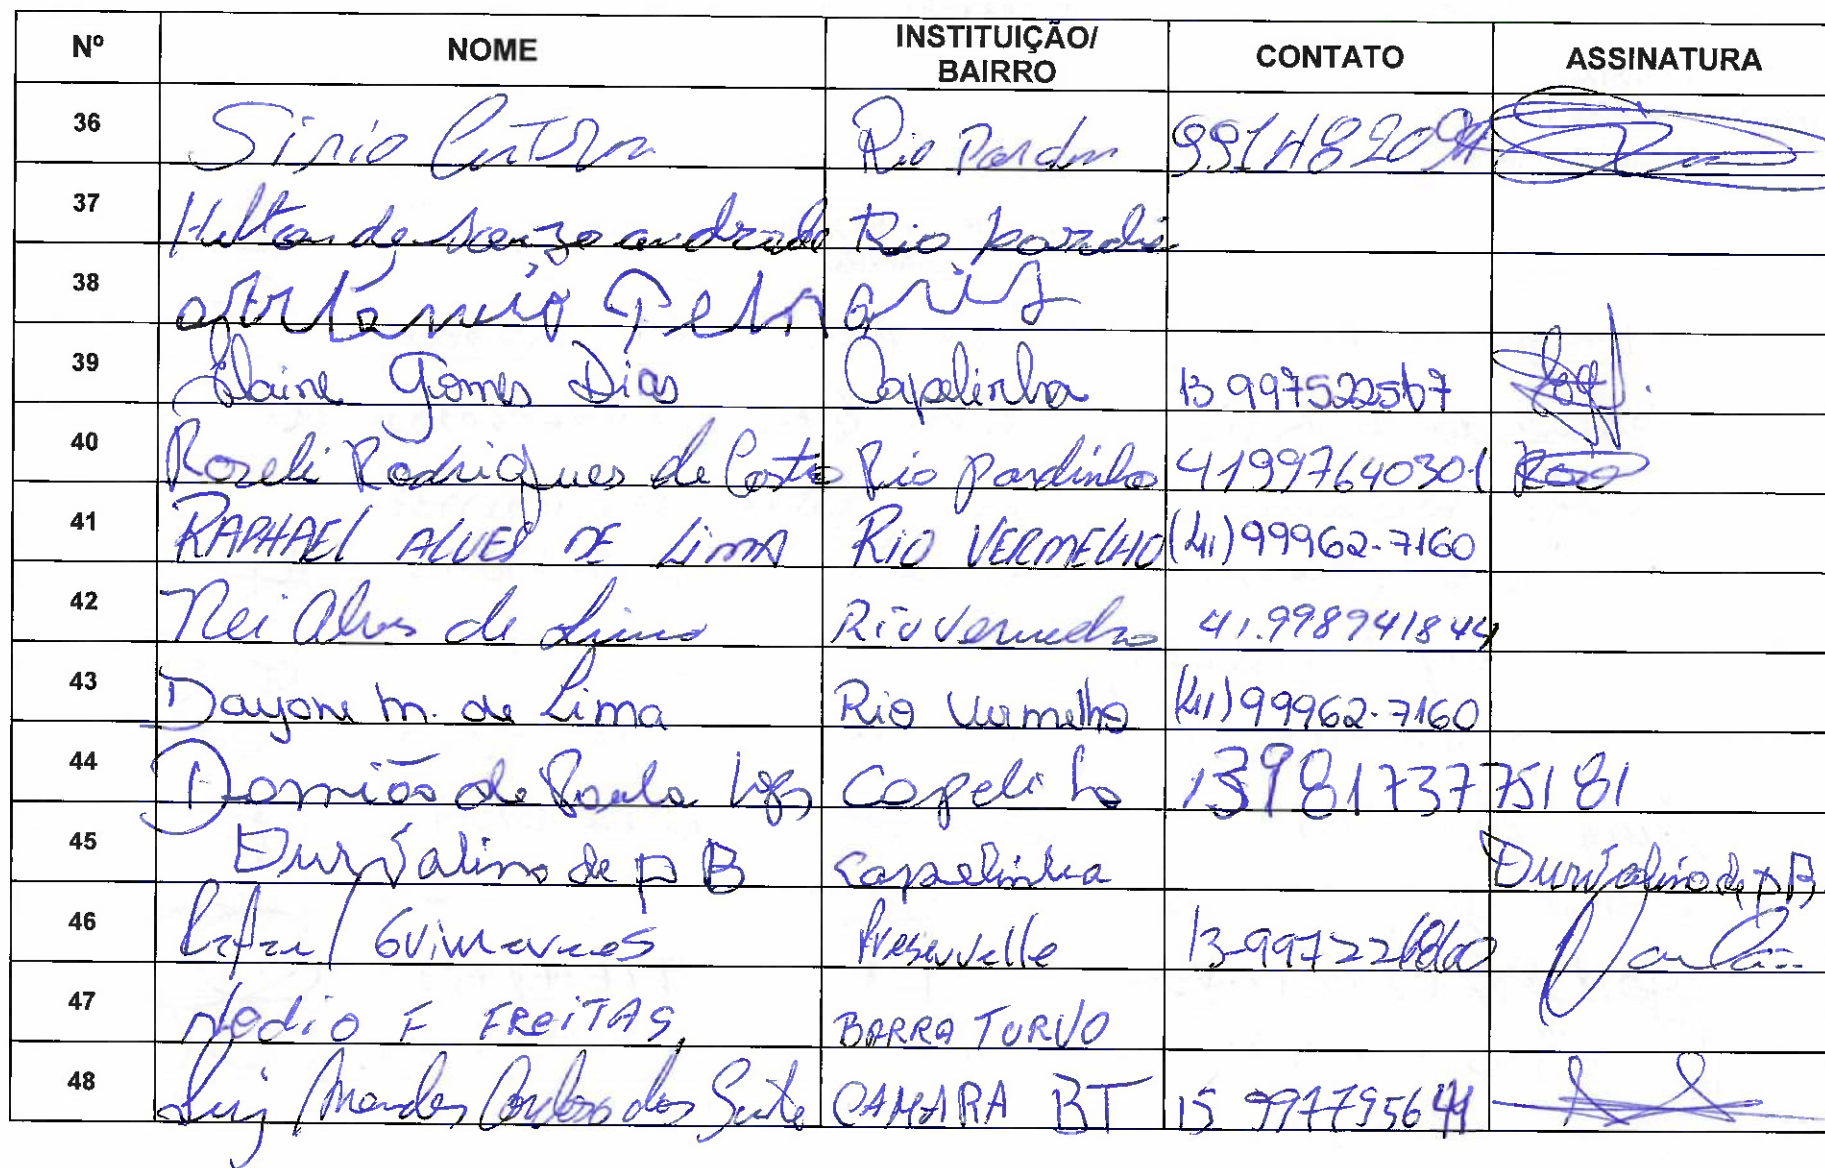 Nº NOME INSTITUIÇÃO/ BAIRRO CONTATO ASSINATURA
36 Sirio Rio Pardo 991482094
37 Helton de Souza andrade Rio pardo
38
39 Elaine Gomes Dias Capelinha 13 997522567
40 Rozeli Rodrigues de Costa Rio pardinho 41997640301
41 RAPHAEL ALVES DE LIMA RIO VERMELHO (41) 99962-7160
42 Nei Alves de Lima Rio Vermelho 41.998941844
43 Dayone m. de Lima Rio Vermelho (41) 99962-7160
44 Damião de Paula Capeliha
45 Durvalino de p B Capelinha Durvalino de p B
46 Rafael GUimaraes
47 F FREITAS BARRA TURVO
48 Luiz Mendes Cardoso dos CAMARA BT 15 997795644